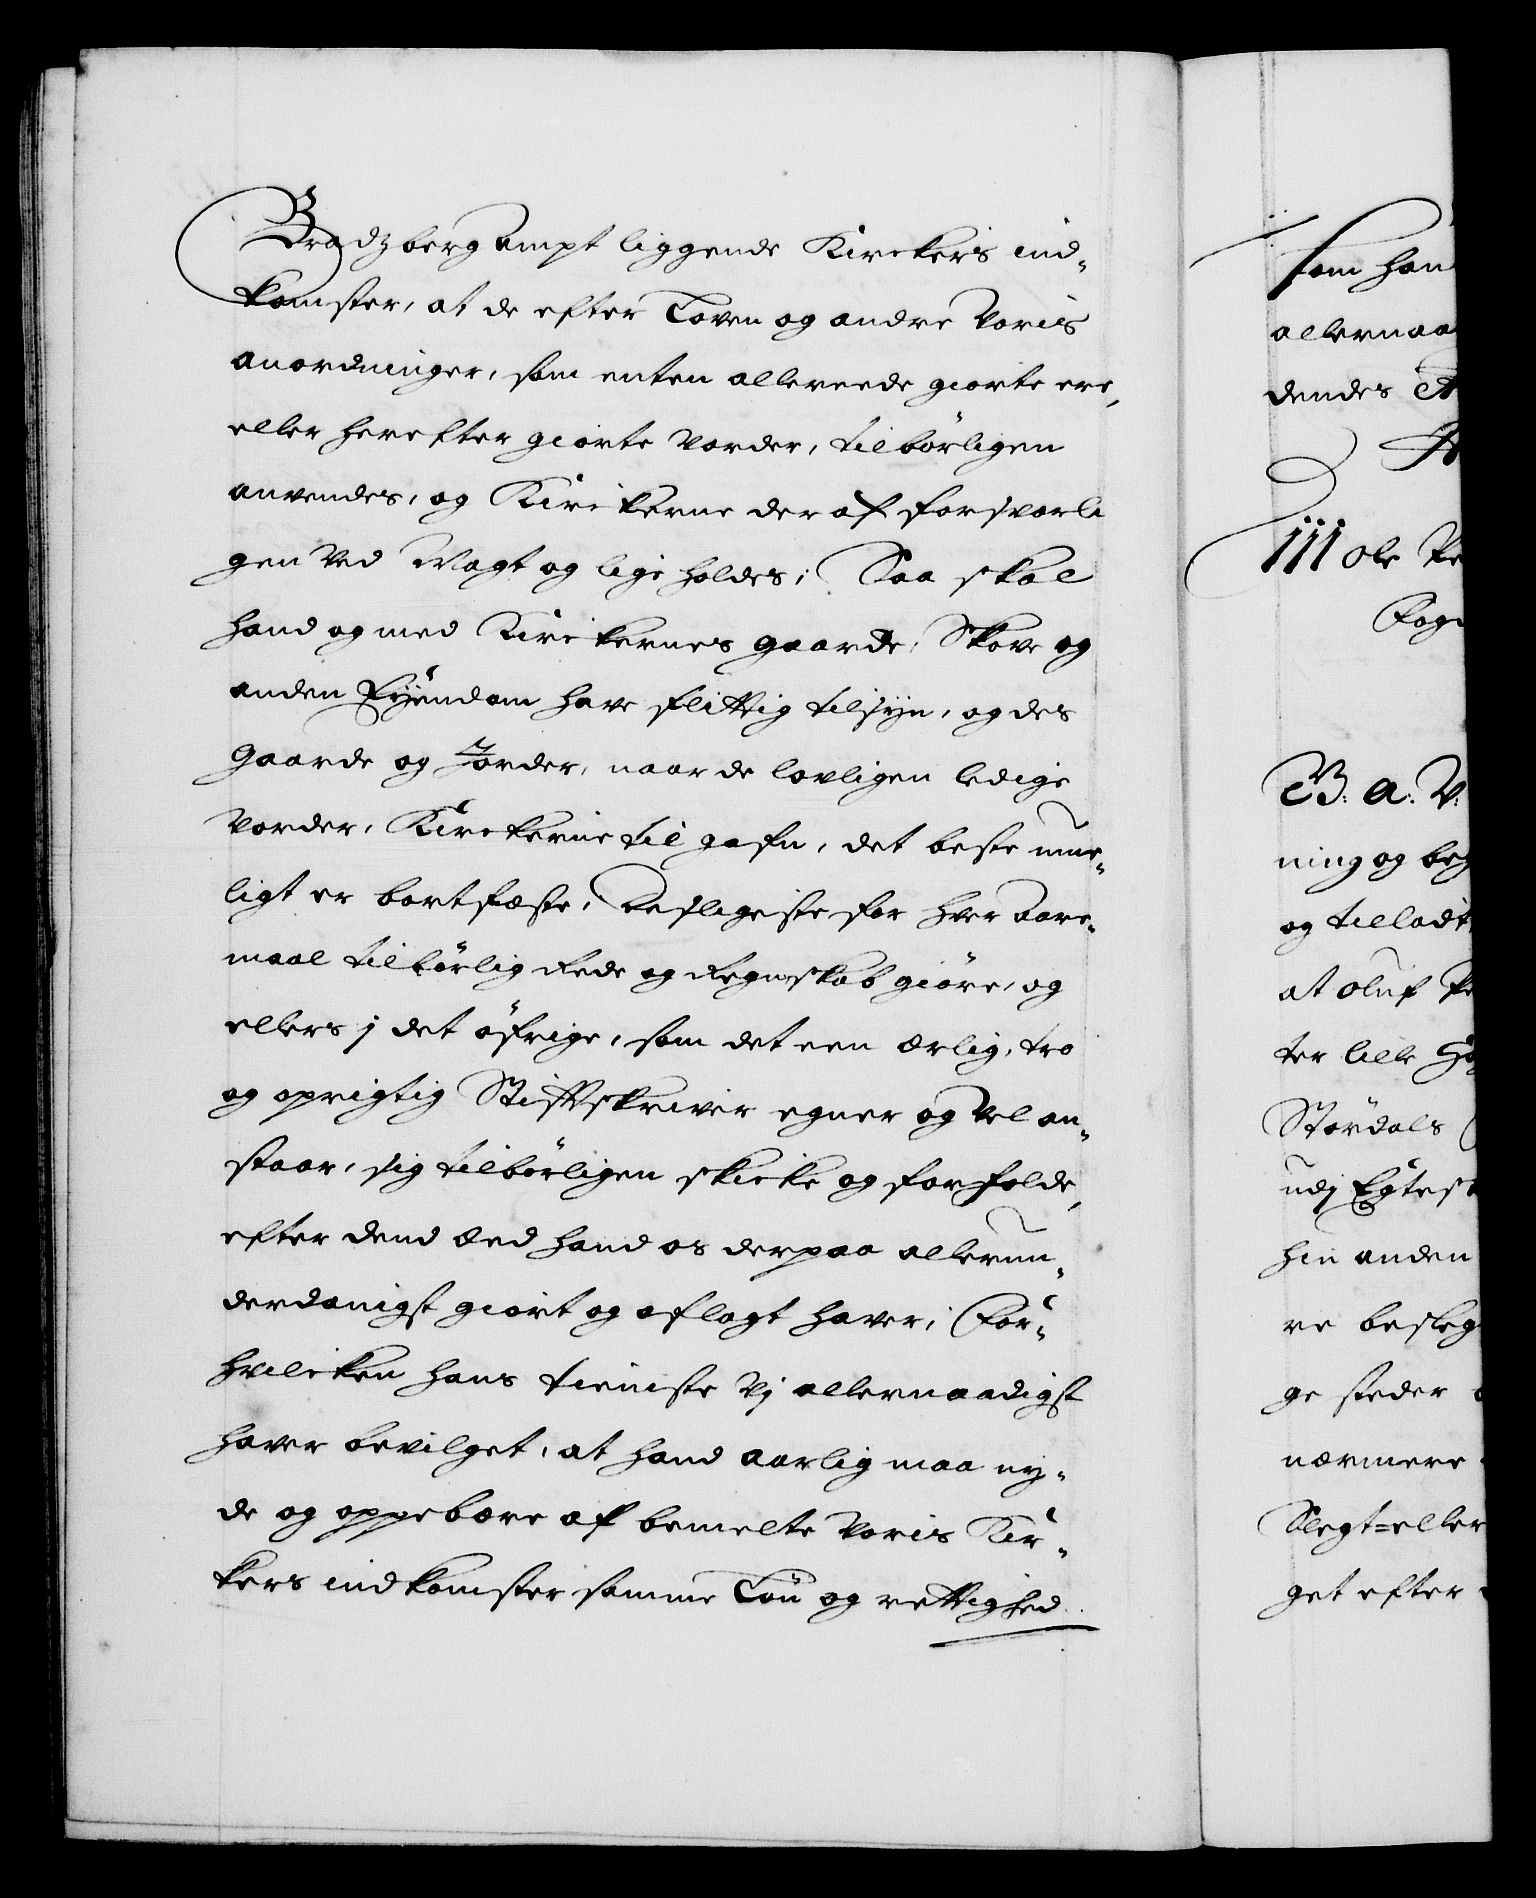 Bradzberg Ampt liggende Kirckers ind-
komster, at de efter Loven og andre Voris
anordninger, som enten allereede giorte ere,
eller herefter giorte Vorder, tilbörligen
anvendes, og Kirckerne der af forsvarli
gen Ved Magt og lige holdes; Saa skal
hand og med Kirckernes gaarde, Skove og
anden Eyendom have flittig tilsyn, og des
gaarde og Jorder, naar de lovligen ledige
Vorder, Kirckerne til gafn, det beste mue-
ligt er bortfæste, Desligeste for hver Aare-
maal tilbörlig Rede og Regnskab giöre, og
ellers j det öfrige, som det een ærlig, tro
og oprigtig Stiftskriver egner og Vel an-
staar, sig tilbörligen skicke og forholde,
efter dend Eed hand os derpaa allerun-
derdanigst giort og aflagt haver; For-
hvilcken hans tieniste Vj allernaadigst
haver bevilget, at hand aarlig maa ny-
de og oppebære af bemelte Voris Kir-
kers indkomster samme Lön og rettighed
som han
allernaa
dendes
iij Ole Pe
Fog
B: A: V:
ning og beg
og tilladt
at Oluf Pe
ter lille
Stördals
udj Egtesk
hin anden
re besleg
ge steder
nærmere
Slegt=eller
get efter